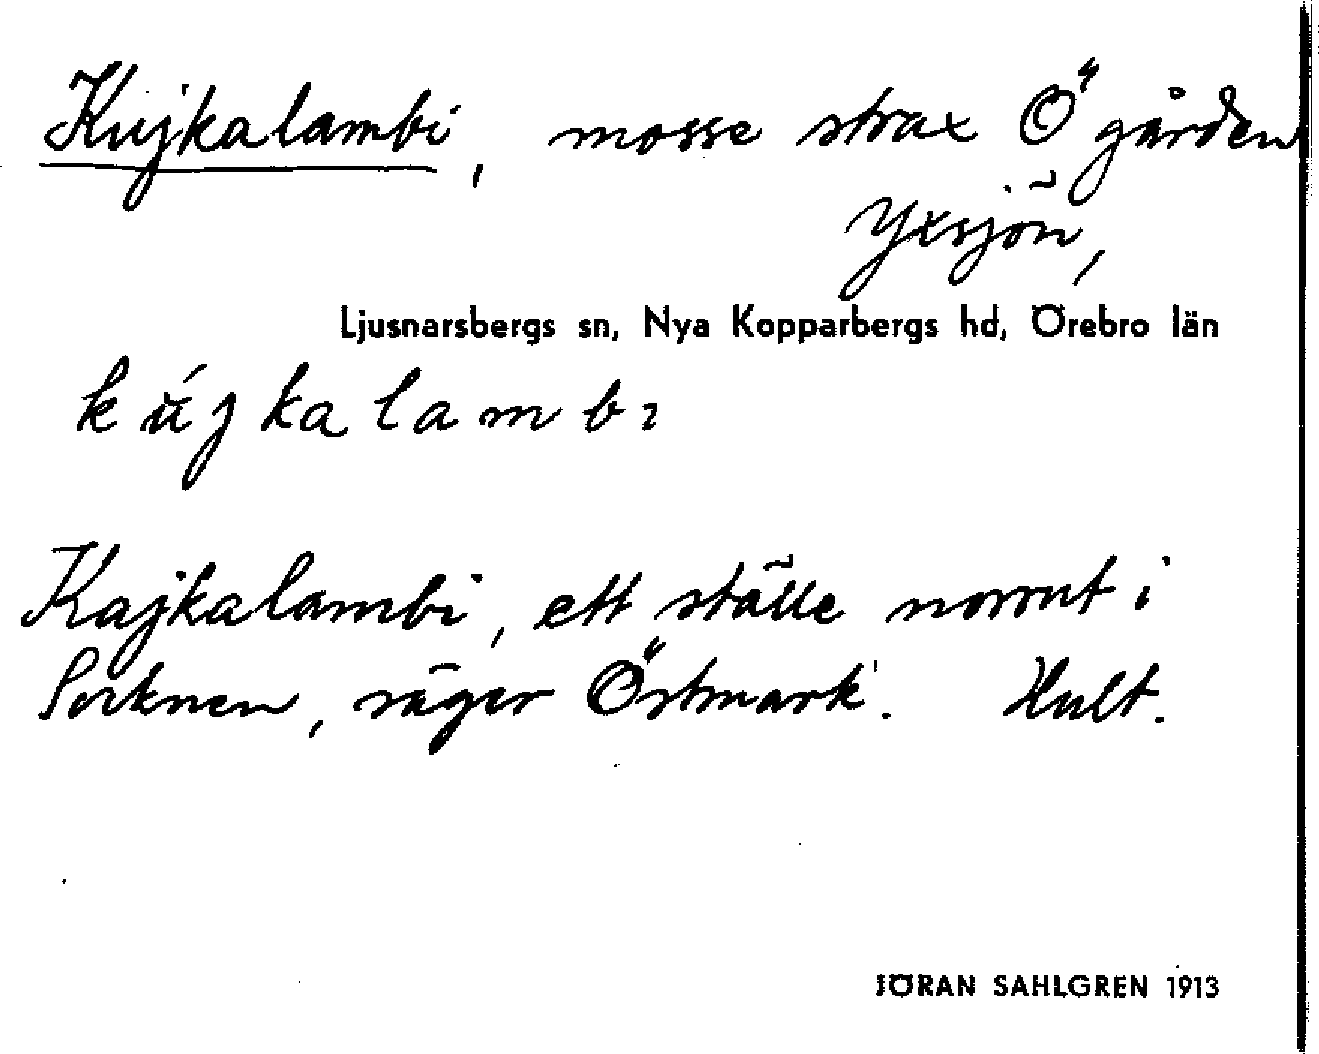 Kujkalambi, mosse strax Ö gården
Yxsjön,
Ljusnarsbergs sn, Nya Kopparbergs hd, Örebro län
kújkalambı
Kajkalambi, ett ställe norrut i
Socknen, säger Östmark. Hult.
JÖRAN SAHLGREN 1913